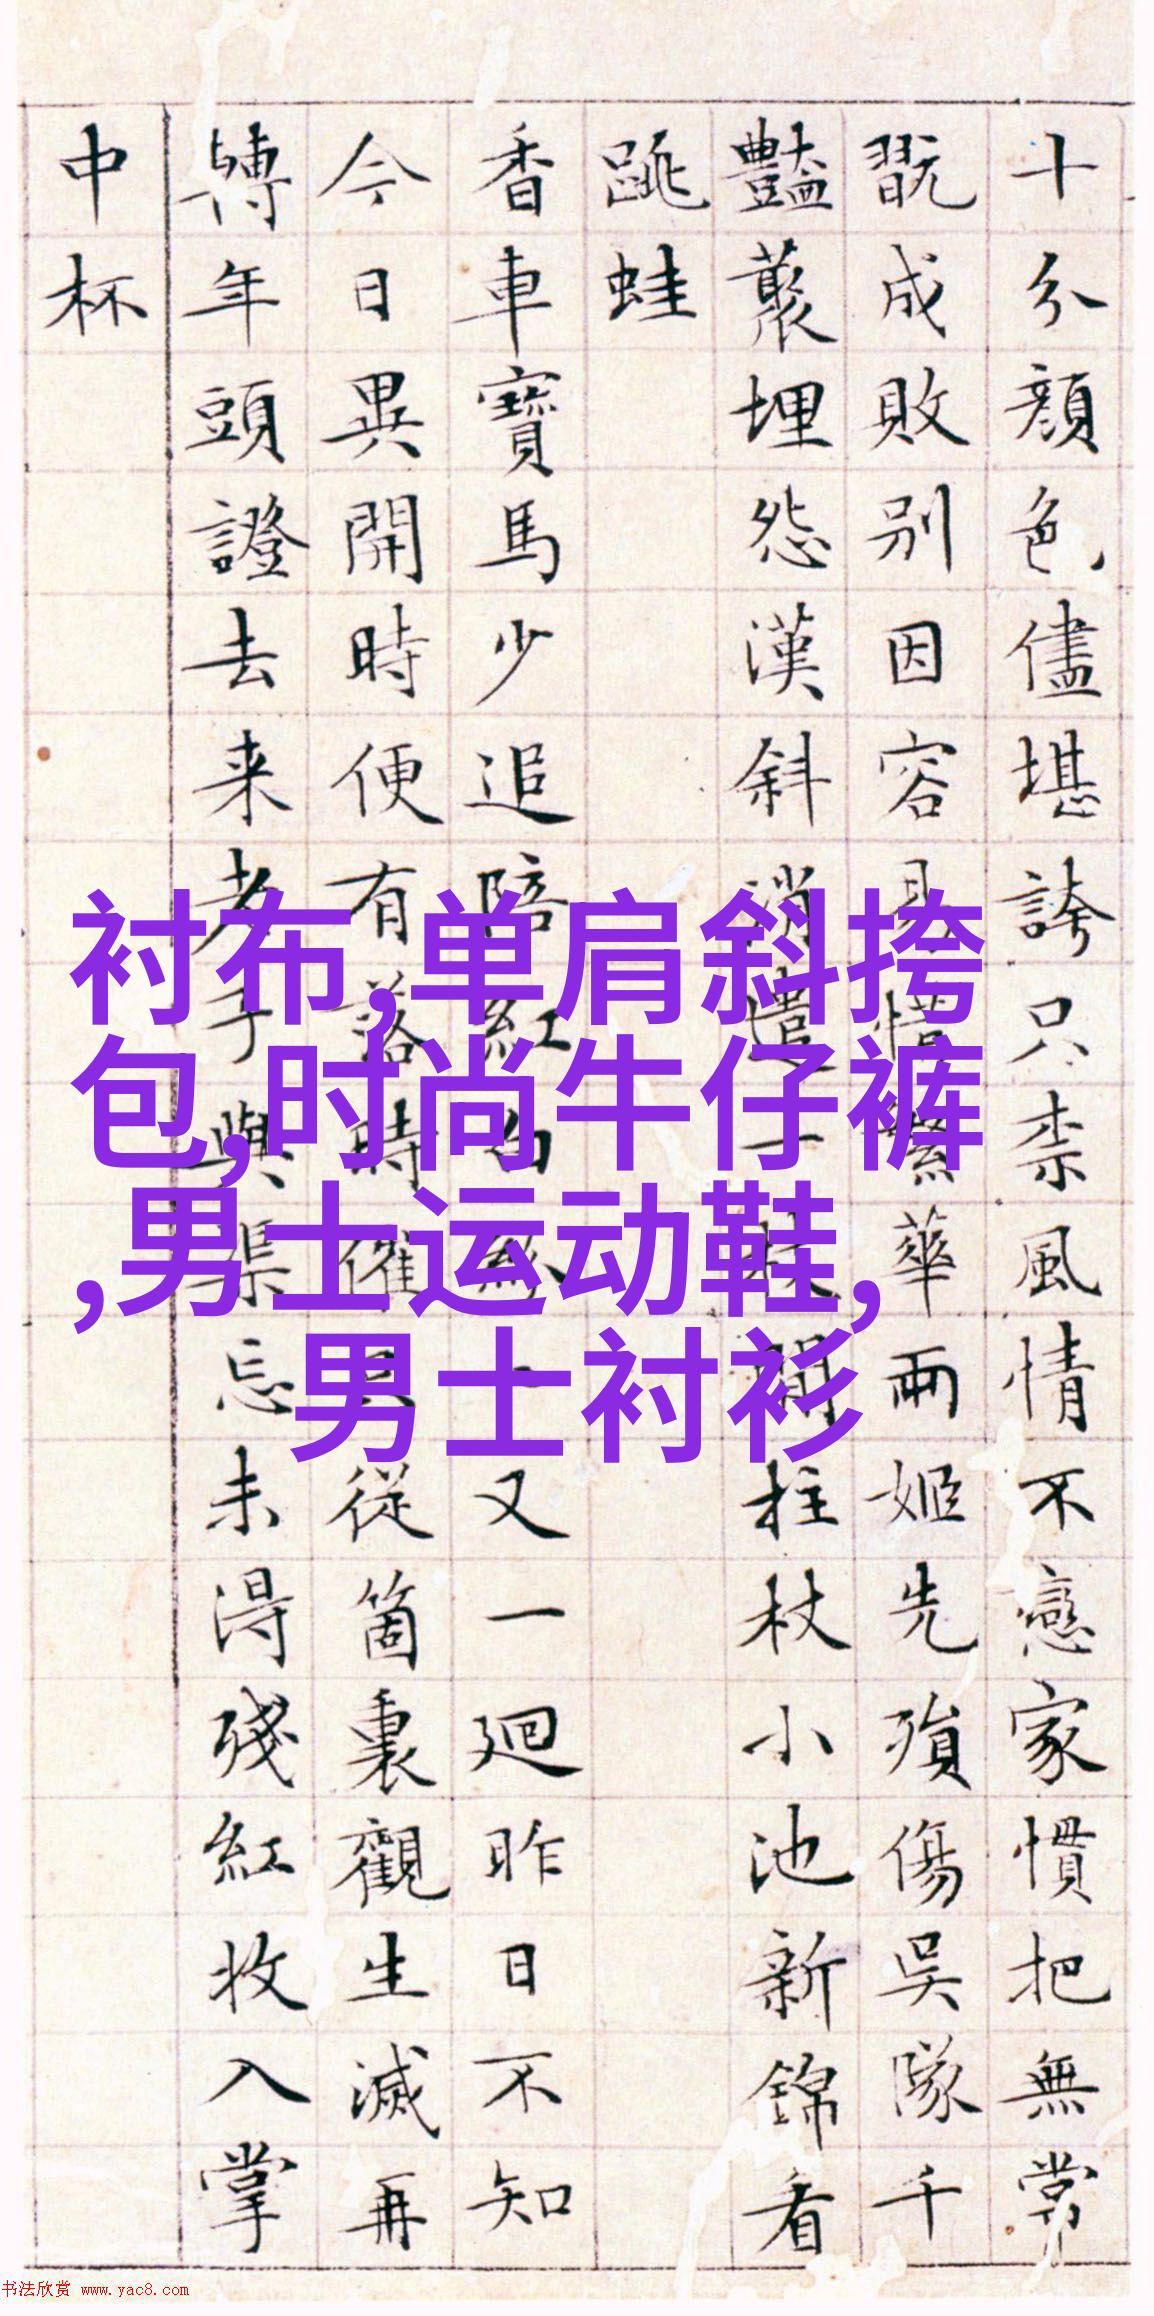 十分顔色儘堪誇只柰風情不戀家慣把無常
翫成敗別因容見惜繁華兩姬先殞傷吳隊千
豔藂埋怨漢斜消遣一枝閒柱杖小池新錦看
跳蛙
香車寶馬少追陪紅白紛又一廻昨日不知
今日異開時便有落時催只從箇裏觀生滅再
轉年頭證去来老子與渠忘未得殘紅收入掌
中杯
衬布,单肩斜挎
包,时尚牛仔裤
,男士运动鞋,
男士衬衫
书法欣赏 www.yac8.com